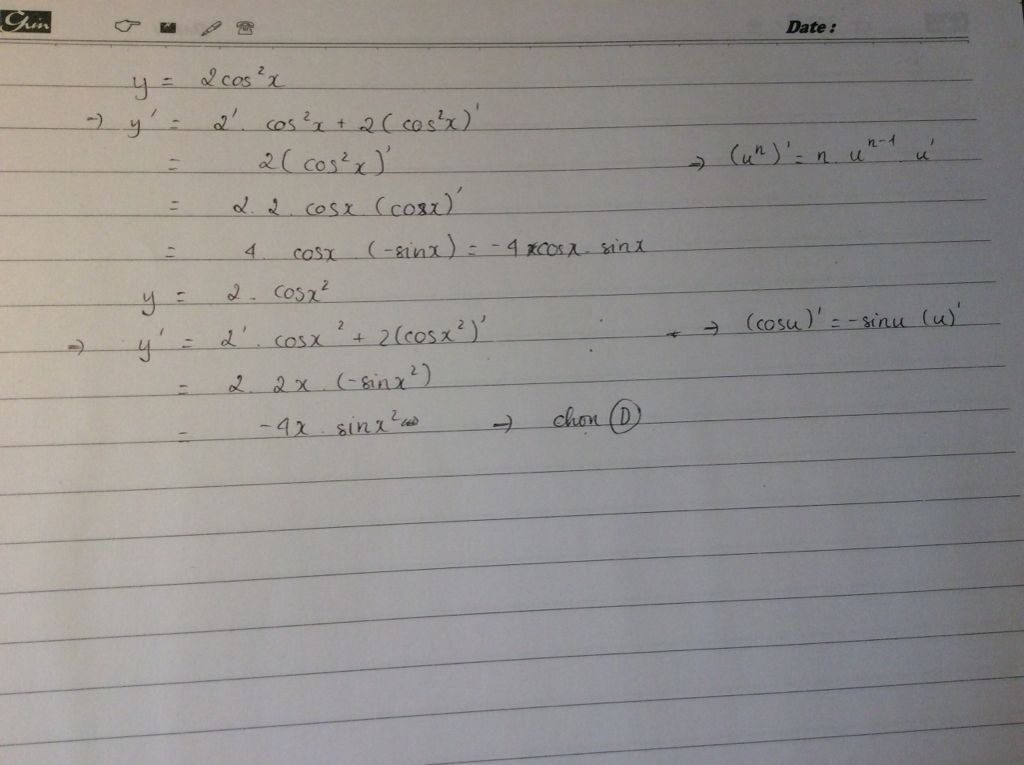 Chin
Date :
y = 2cos²x
→ y' = 2'. cos²x + 2(cos²x)'
= 2(cos²x)' → (uⁿ)' = n. uⁿ⁻¹ u'
= 2. 2. cosx (cosx)'
= 4. cosx (-sinx) = -4 cosx. sinx
y = 2. cosx²
→ y' = 2'. cosx² + 2(cosx²)' → (cosu)' = -sinu (u)'
= 2. 2x. (-sinx²)
= -4x. sinx² → chon D